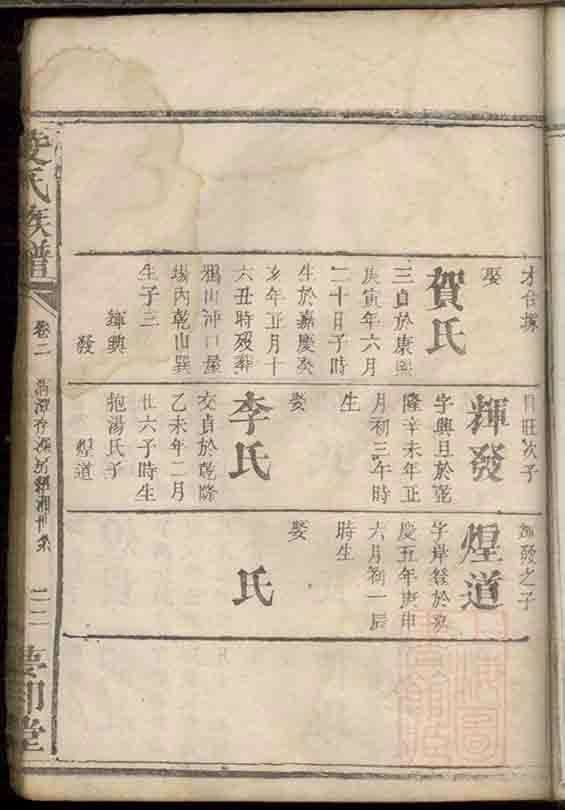 才合據
娶
賀氏
三貞於康熙
庚寅年六月
二十日子時
生於嘉慶癸
亥年正月十
六丑時歿葬
山沖口屋
場內乾山巽
生子三
輝興
發
日旺次子
輝發
字興且於乾
隆辛未年正
月初三午時
生
娶
李氏
交貞於乾隆
乙未年二月
廿六子時生
抱湯氏子
煌道
輝發之子
煌道
字岸發於嘉
慶五年庚申
六月初一辰
時生
娶
氏
氏族譜
卷二
二
堂